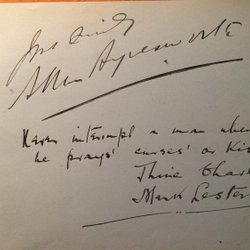 Allan Aynesworth
Never interrupt a man when
he prays' curses' or Kis
Thine
Mark Lester